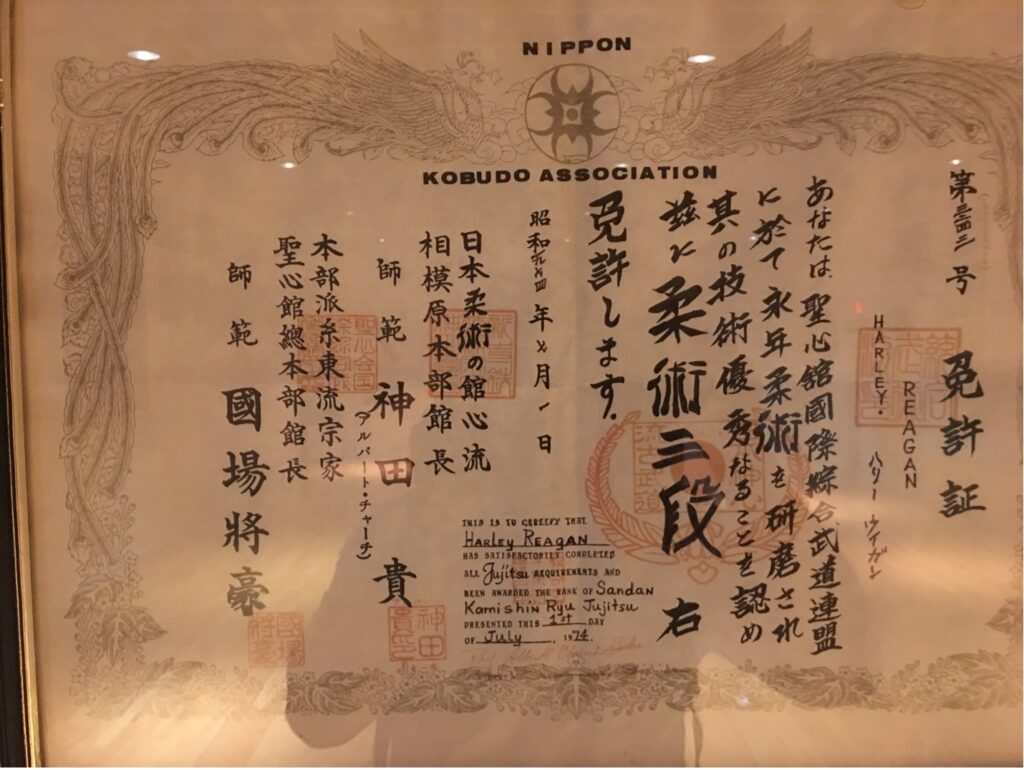 NIPPON
KOBUDO ASSOCIATION
第 号 免許証
HARLEY. REAGAN
ハリー
あなたは、聖心舘國際綜合武道連盟
に於て永年柔術を研磨され
其の技術優秀なることを認め
茲に柔術三段右
免許します.
昭和九七四年七月一日
日本柔術の館心流
相模原本部館長
師範 神田 貴
(アルバート・チャーチ)
本部派糸東流宗家
聖心館總本部館長
師範 國場將豪
THIS IS TO CERTIFY THAT
HARLEY REAGAN
HAS SATISFACTORILY COMPLETED
ALL Jujitsu REQUIREMENTS AND
BEEN AWARDED THE RANK OF Sandan
Kamishin Ryu Jujitsu
PRESENTED THIS 1st DAY
OF July, 1974.